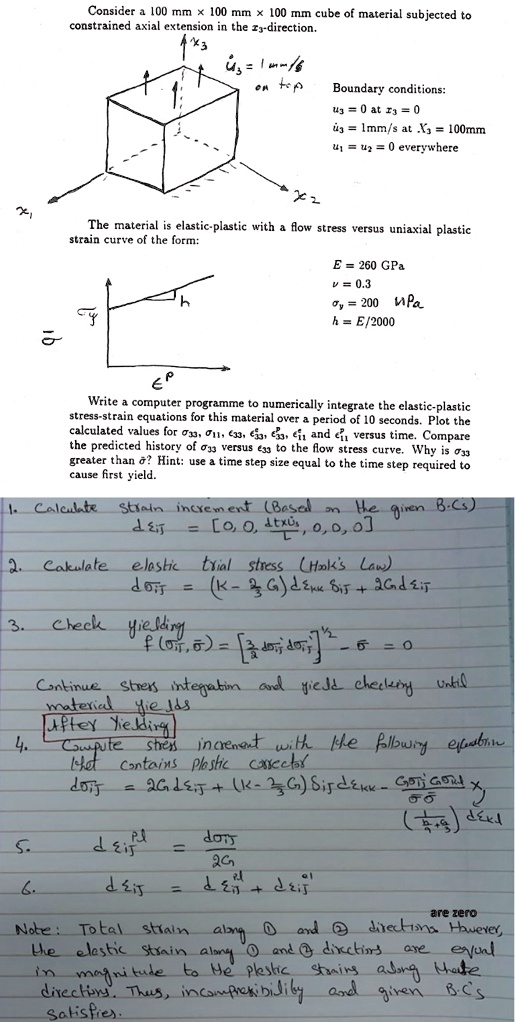 Consider a 100 mm × 100 mm × 100 mm cube of material subjected to
constrained axial extension in the x₃-direction.
x₃
u̇₃ = 1 mm/s
on top
Boundary conditions:
u₃ = 0 at x₃ = 0
u̇₃ = 1mm/s at X₃ = 100mm
u₁ = u₂ = 0 everywhere
x₁
x₂
The material is elastic-plastic with a flow stress versus uniaxial plastic
strain curve of the form:
E = 260 GPa
ν = 0.3
σ_y = 200 MPa
h = E/2000
σ_y
h
σ̄
ε^p
Write a computer programme to numerically integrate the elastic-plastic
stress-strain equations for this material over a period of 10 seconds. Plot the
calculated values for σ₃₃, σ₁₁, ε₃₃, ε₃₃^e, ε₃₃^p, ε₁₁^e and ε₁₁^p versus time. Compare
the predicted history of σ₃₃ versus ε₃₃ to the flow stress curve. Why is σ₃₃
greater than σ̄? Hint: use a time step size equal to the time step required to
cause first yield.
1. Calculate strain increment (Based on the given B.Cs)
dε_ij = [0, 0, dt×u̇₃/L, 0, 0, 0]
2. Calculate elastic trial stress (Hook's Law)
dσ_ij = (K - 2/3 G) dε_KK δ_ij + 2G dε_ij
3. Check yielding
f(σ_ij, σ̄) = [3/2 dσ_ij' dσ_ij']^1/2 - σ̄ = 0
Continue stress integration and yield checking until
material yields
After Yielding
4. Compute stress increment with the following equation
that contains plastic corrector
dσ_ij = 2G dε_ij + (K - 2/3 G) δ_ij dε_KK - Gσ_ij' Gσ_kl / σ̄ σ̄ ×
(h/9 + G/3) dε_kl
5. dε_ij^pl = dσ_ij / 2G
6. dε_ij = dε_ij^pl + dε_ij^el
are zero
Note: Total strain along ① and ② directions However,
the elastic strain along ① and ② directions are equal
in magnitude to the plastic strains along those
directions. Thus, incompressibility and given B.C's
satisfies.